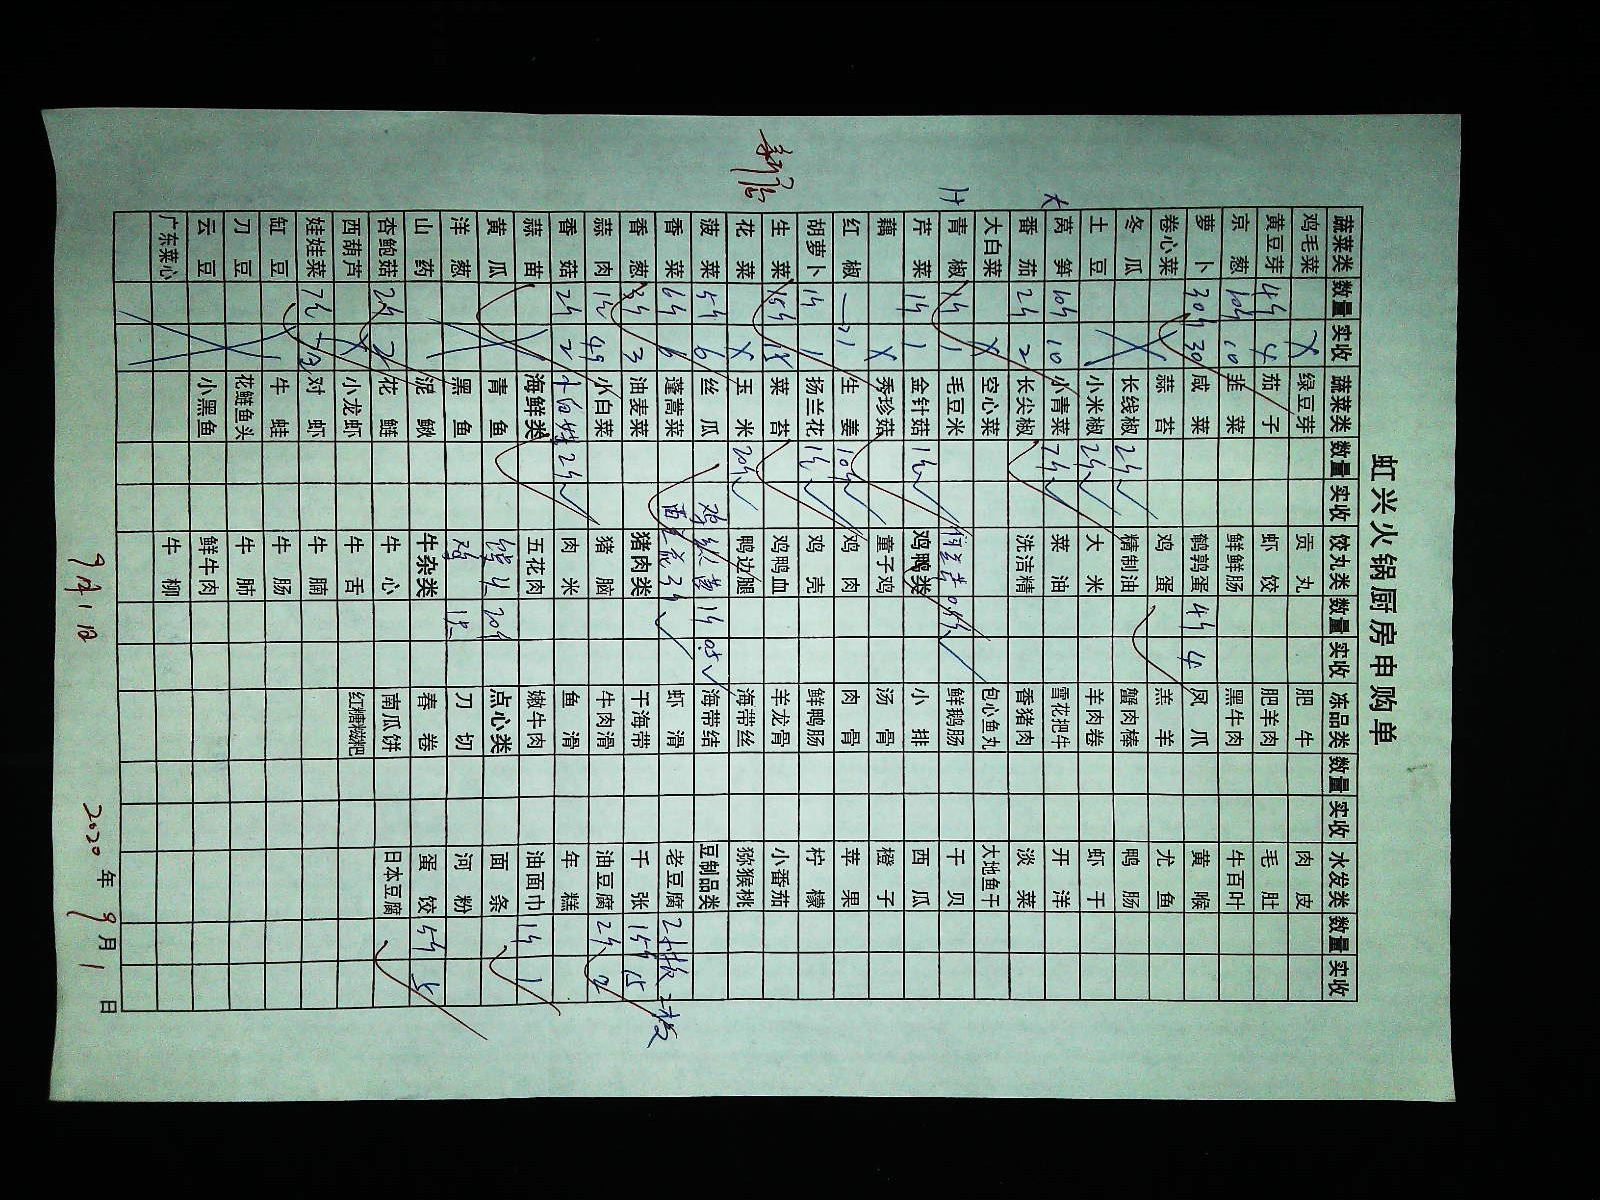 虹兴火锅厨房申购单
新店
蔬菜类 数量 实收 蔬菜类 数量 实收 饺丸类 数量 实收 冻品类 数量 实收 水发类 数量 实收
鸡毛菜 绿豆芽 贡丸 肥牛 肉皮
黄豆芽 4斤 4 茄子 虾饺 肥羊肉 毛肚
京葱 10斤 10 韭菜 鲜鲜肠 黑牛肉 牛百叶
萝卜 30斤 30 咸菜 鹌鹑蛋 4斤 4 凤爪 黄喉
卷心菜 蒜苔 鸡蛋 羔羊 尤鱼
冬瓜 长线椒 2斤 精制油 蟹肉棒 鸭肠
土豆 小米椒 2斤 大米 羊肉卷 虾干
大 莴笋 10斤 10 小青菜 7斤 菜油 雪花把牛 开洋
番茄 2斤 2 长尖椒 洗洁精 香猪肉 淡菜
大白菜 空心菜 包心鱼丸 大地鱼干
青椒 1斤 1 毛豆米 鲜鹅肠 干贝
芹菜 1斤 1 金针菇 1斤 鸡鸭类 小排 西瓜
藕 秀珍菇 童子鸡 汤骨 橙子
红椒 1 生姜 10斤 鸡肉 肉骨 苹果
胡萝卜 1斤 1 扬兰花 1斤 鸡壳 鲜鸭肠 柠檬
生菜 15斤 15 菜苔 鸡鸭血 羊龙骨 小番茄
花菜 玉米 20斤 鸭边腿 海带丝 猕猴桃
菠菜 5斤 6 丝瓜 1斤 海带结 豆制品类
香菜 6斤 6 蓬蒿菜 虾滑 老豆腐 2板 2板
香葱 3斤 3 油麦菜 猪肉类 干海带 千张 15斤 15
蒜肉 1斤 小白菜 猪脑 牛肉滑 油豆腐 2斤 2
香菇 2斤 2 2斤 肉米 鱼滑 年糕
蒜苗 海鲜类 五花肉 嫩牛肉 油面巾 1斤 1
黄瓜 青鱼 20斤 点心类 面条
洋葱 黑鱼 鸡 刀切 河粉
山药 泥鳅 牛杂类 春卷 蛋饺 5斤 5
杏鲍菇 2斤 2 花鲢 牛心 南瓜饼 日本豆腐
西葫芦 小龙虾 牛舌 红糖糍粑
娃娃菜 7斤 对虾 牛腩
缸豆 牛蛙 牛肠
刀豆 花鲢鱼头 牛肺
云豆 小黑鱼 鲜牛肉
广东菜心 牛柳
9月1日 2020年9月1日